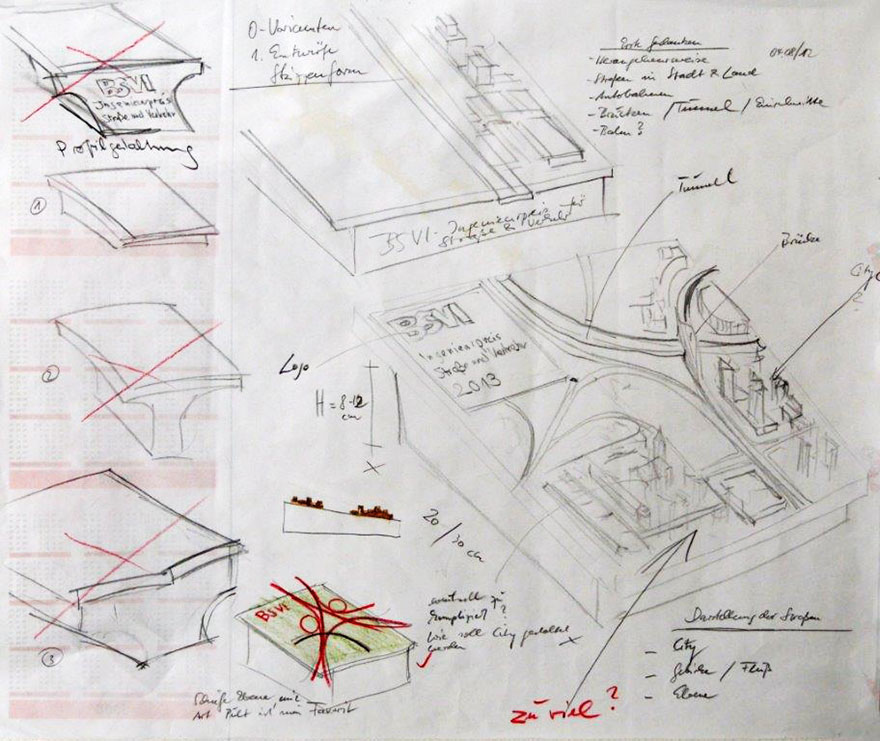 BSVI
Ingenieurpreis
Straße und Verkehr
Profilgestaltung
1
2
3
0-Varianten
1. Entwürfe
BSVI - Ingenieurpreis für
Straße & Verkehr
Erste Gedanken
04.08/12
- Herangehensweise
- Straßen in Stadt & Land
- Autobahnen
- Brücken / Tunnel / Einschnitte
- Bahn?
Tunnel
Brücke
City
?
BSVI
Ingenieurpreis
Straße und Verkehr
2013
Logo
H = 8-12
cm
x
20/30 cm
BSVI
eventuell zu
kompliziert?
Wie soll City gestaltet
werden
x
Schiefe Ebene mit
Art Pult ist mein Favorit
zu viel?
Darstellung der Straßen
- City
- Gebirge / Fluß
- Ebene